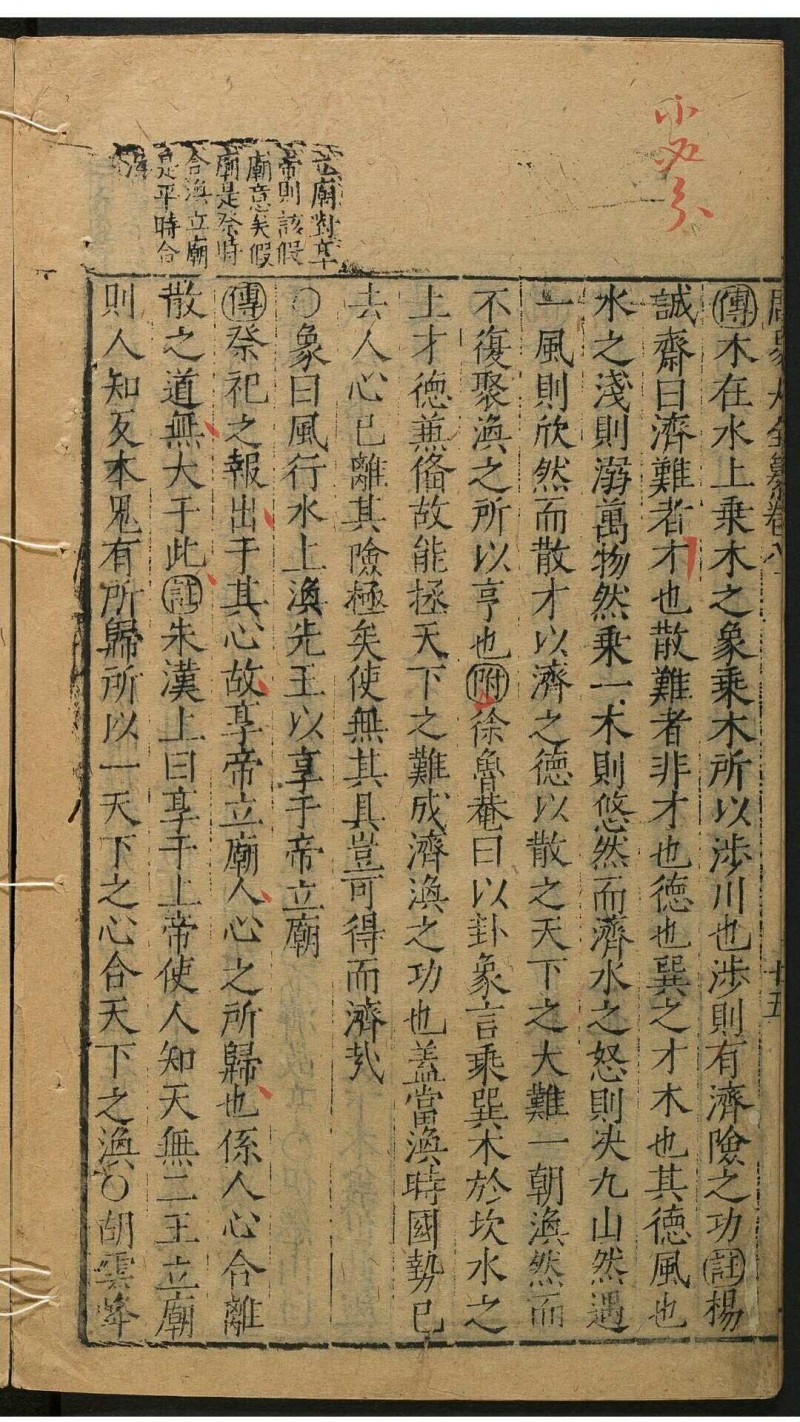 小必分
立廟對享
帝則該假
廟意矣假
廟是祭時
合渙立廟
是平時合
渙
周易大全纂卷八 十五
傳木在水上乗木之象乗木所以涉川也涉則有濟險之功註楊
誠齋曰濟難者才也散難者非才也德也巽之才木也其德風也
水之淺則溺萬物然乗一木則悠然而濟水之怒則决九山然遇
一風則欣然而散才以濟之德以散之天下之大難一朝渙然而
不復聚渙之所以亨也附徐魯菴曰以卦象言乘巽木於坎水之
上才德兼俻故能拯天下之難成濟渙之功也蓋當渙時國勢已
去人心已離其險極矣使無其具豈可得而濟㢤
○象曰風行水上渙先王以享于帝立廟
傳祭祀之報出于其心故享帝立廟人心之所歸也係人心合離
散之道無大于此註朱漢上曰享于上帝使人知天無二王立廟
則人知反本鬼有所歸所以一天下之心合天下之渙○胡雲峰